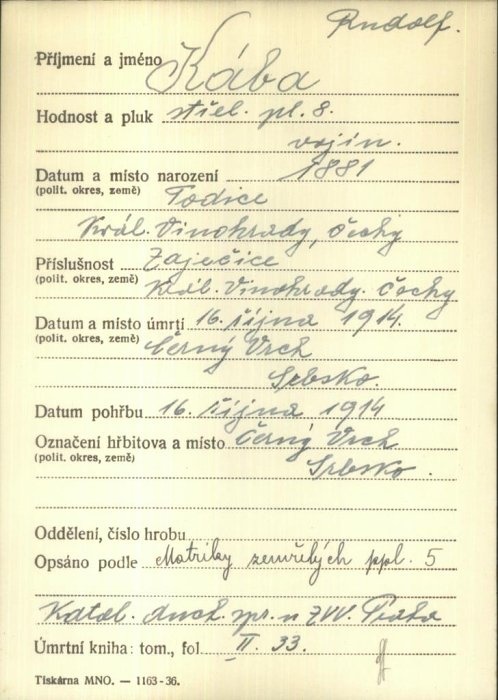 Rudolf.
Příjmení a jméno Kába
Hodnost a pluk střel. pl. 8.
vojín.
Datum a místo narození 1881
(polit. okres, země) Todice
Král. Vinohrady, Čechy
Příslušnost Zaječice
(polit. okres, země) Král. Vinohrady. Čechy
Datum a místo úmrtí 16. října 1914.
(polit. okres, země) Černý Vrch
Srbsko.
Datum pohřbu 16. října 1914
Označení hřbitova a místo Černý Vrch
(polit. okres, země) Srbsko.
Oddělení, číslo hrobu
Opsáno podle Matriky zemřelých ppl. 5
Katol. duch. spr. u ZVV. Praha
Úmrtní kniha: tom., fol. II. 33.
Tiskárna MNO. — 1163-36.